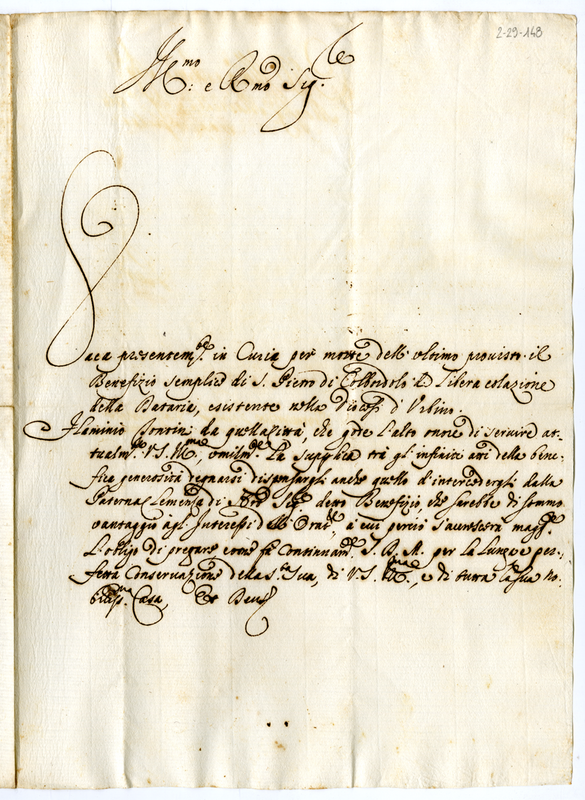 2-29-148
Ill.mo: e R.mo Sig.re
Vaca presentem.te in Curia per morte dell' vltimo prouisto il
Benefizio semplice di S. Pietro di di Libera colazione
della Dataria, esistente nella Diocesi d'Vrbino.
Flaminio di quella Città, che gode L'alto onore di seruire at-
tualm.te V.S. Ill.ma, vmilm.te La supplica trà gli infiniti atti della bene-
fica generosità degnarsi dispensargli anche quello d'intercedergli dalla
Paterna Clemenza di Sig.re detto Benefizio, che sarebbe di sommo
vantaggio agl' Interessi dell' Orat.re, à cui perciò s'accrescerà magg.re
L'obligo di pregare come fà Continuam.te S.D.M. per la Lunga e per-
fetta Conseruazione della S.tà Sua, di V.S. Ill.ma, e di tutta la sua no-
biliss.ma Casa,